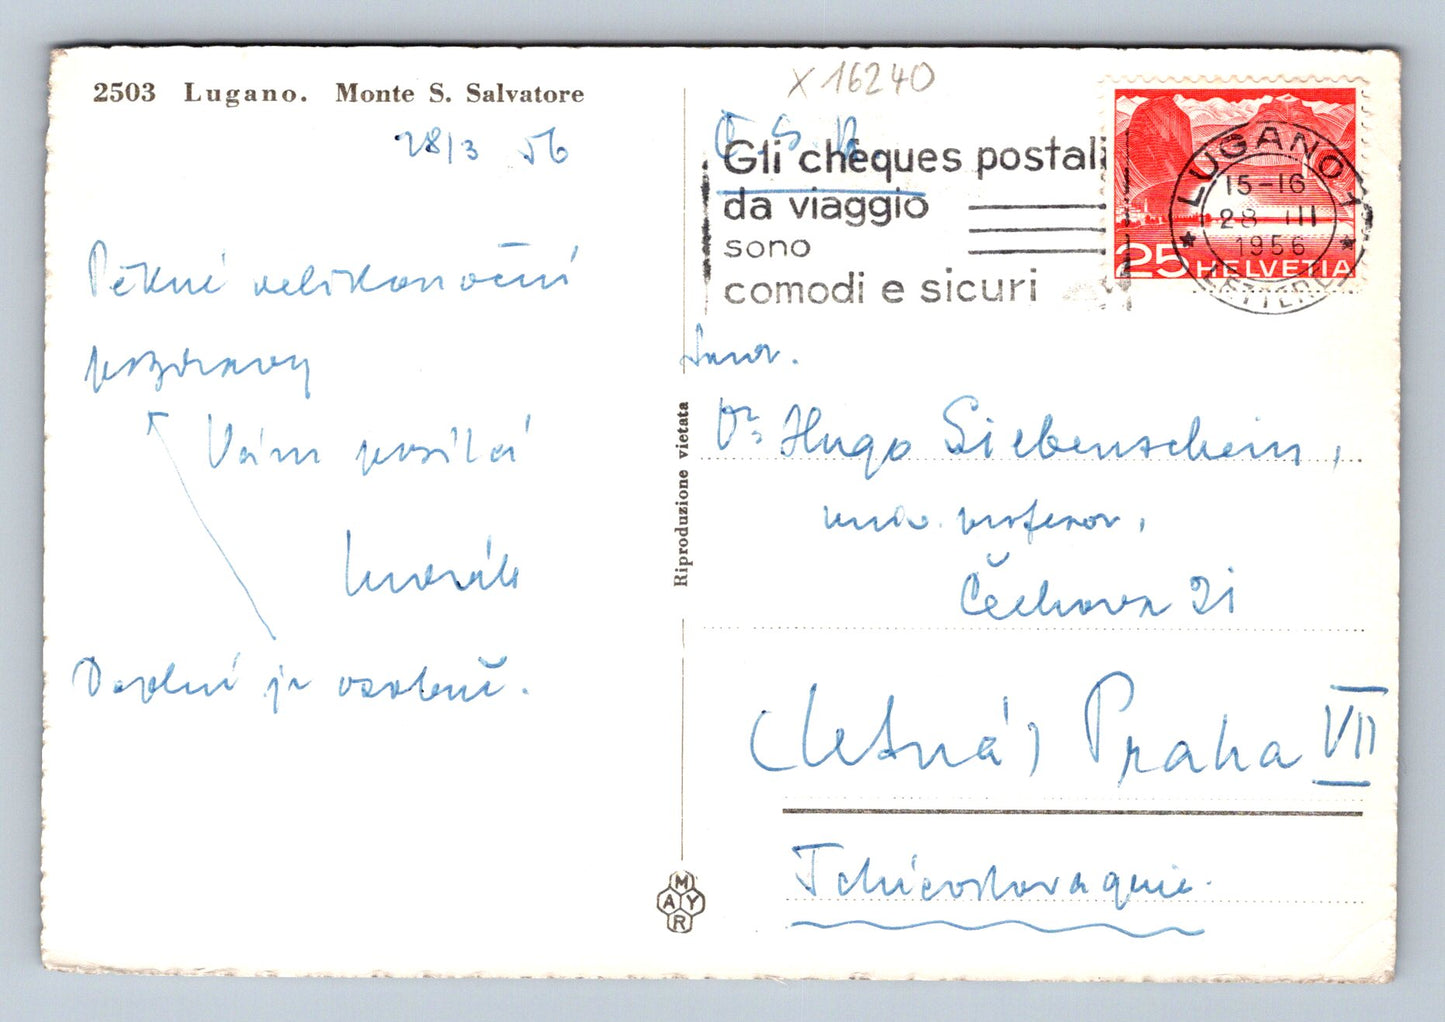 2503 Lugano. Monte S. Salvatore
28/3 56
Pěkné velikonoční
pozdravy
Vám posílá
Dopolní je osobně.
Riproduzione vietata
MAYR
X 16240
Č. S. R.
Gli chèques postali
da viaggio
sono
comodi e sicuri
LUGANO 1
15-16
28 III
1956
LETTERE
25 HELVETIA
Dr Hugo Siebenschein,
univ. profesor,
Čechova 21
(Letná) Praha VII
Tchécoslovaquie.